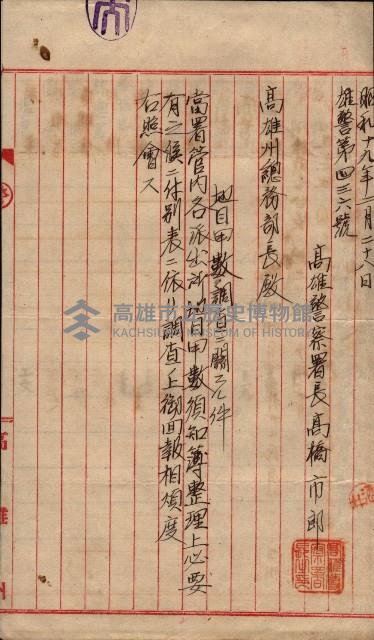 昭和十九年二月二十八日
雄警第四三六號
高雄警察署長高橋市郎
高雄州總務部長殿
地目甲數調査ニ關スル件
當署管內各派出所地目甲數須知簿整理上必要
有之候ニ付別表ニ依リ調査ノ上御回報相煩度
右照會ス
高雄市立歷史博物館
KAOHSIUNG MUSEUM OF HISTORY
高雄州